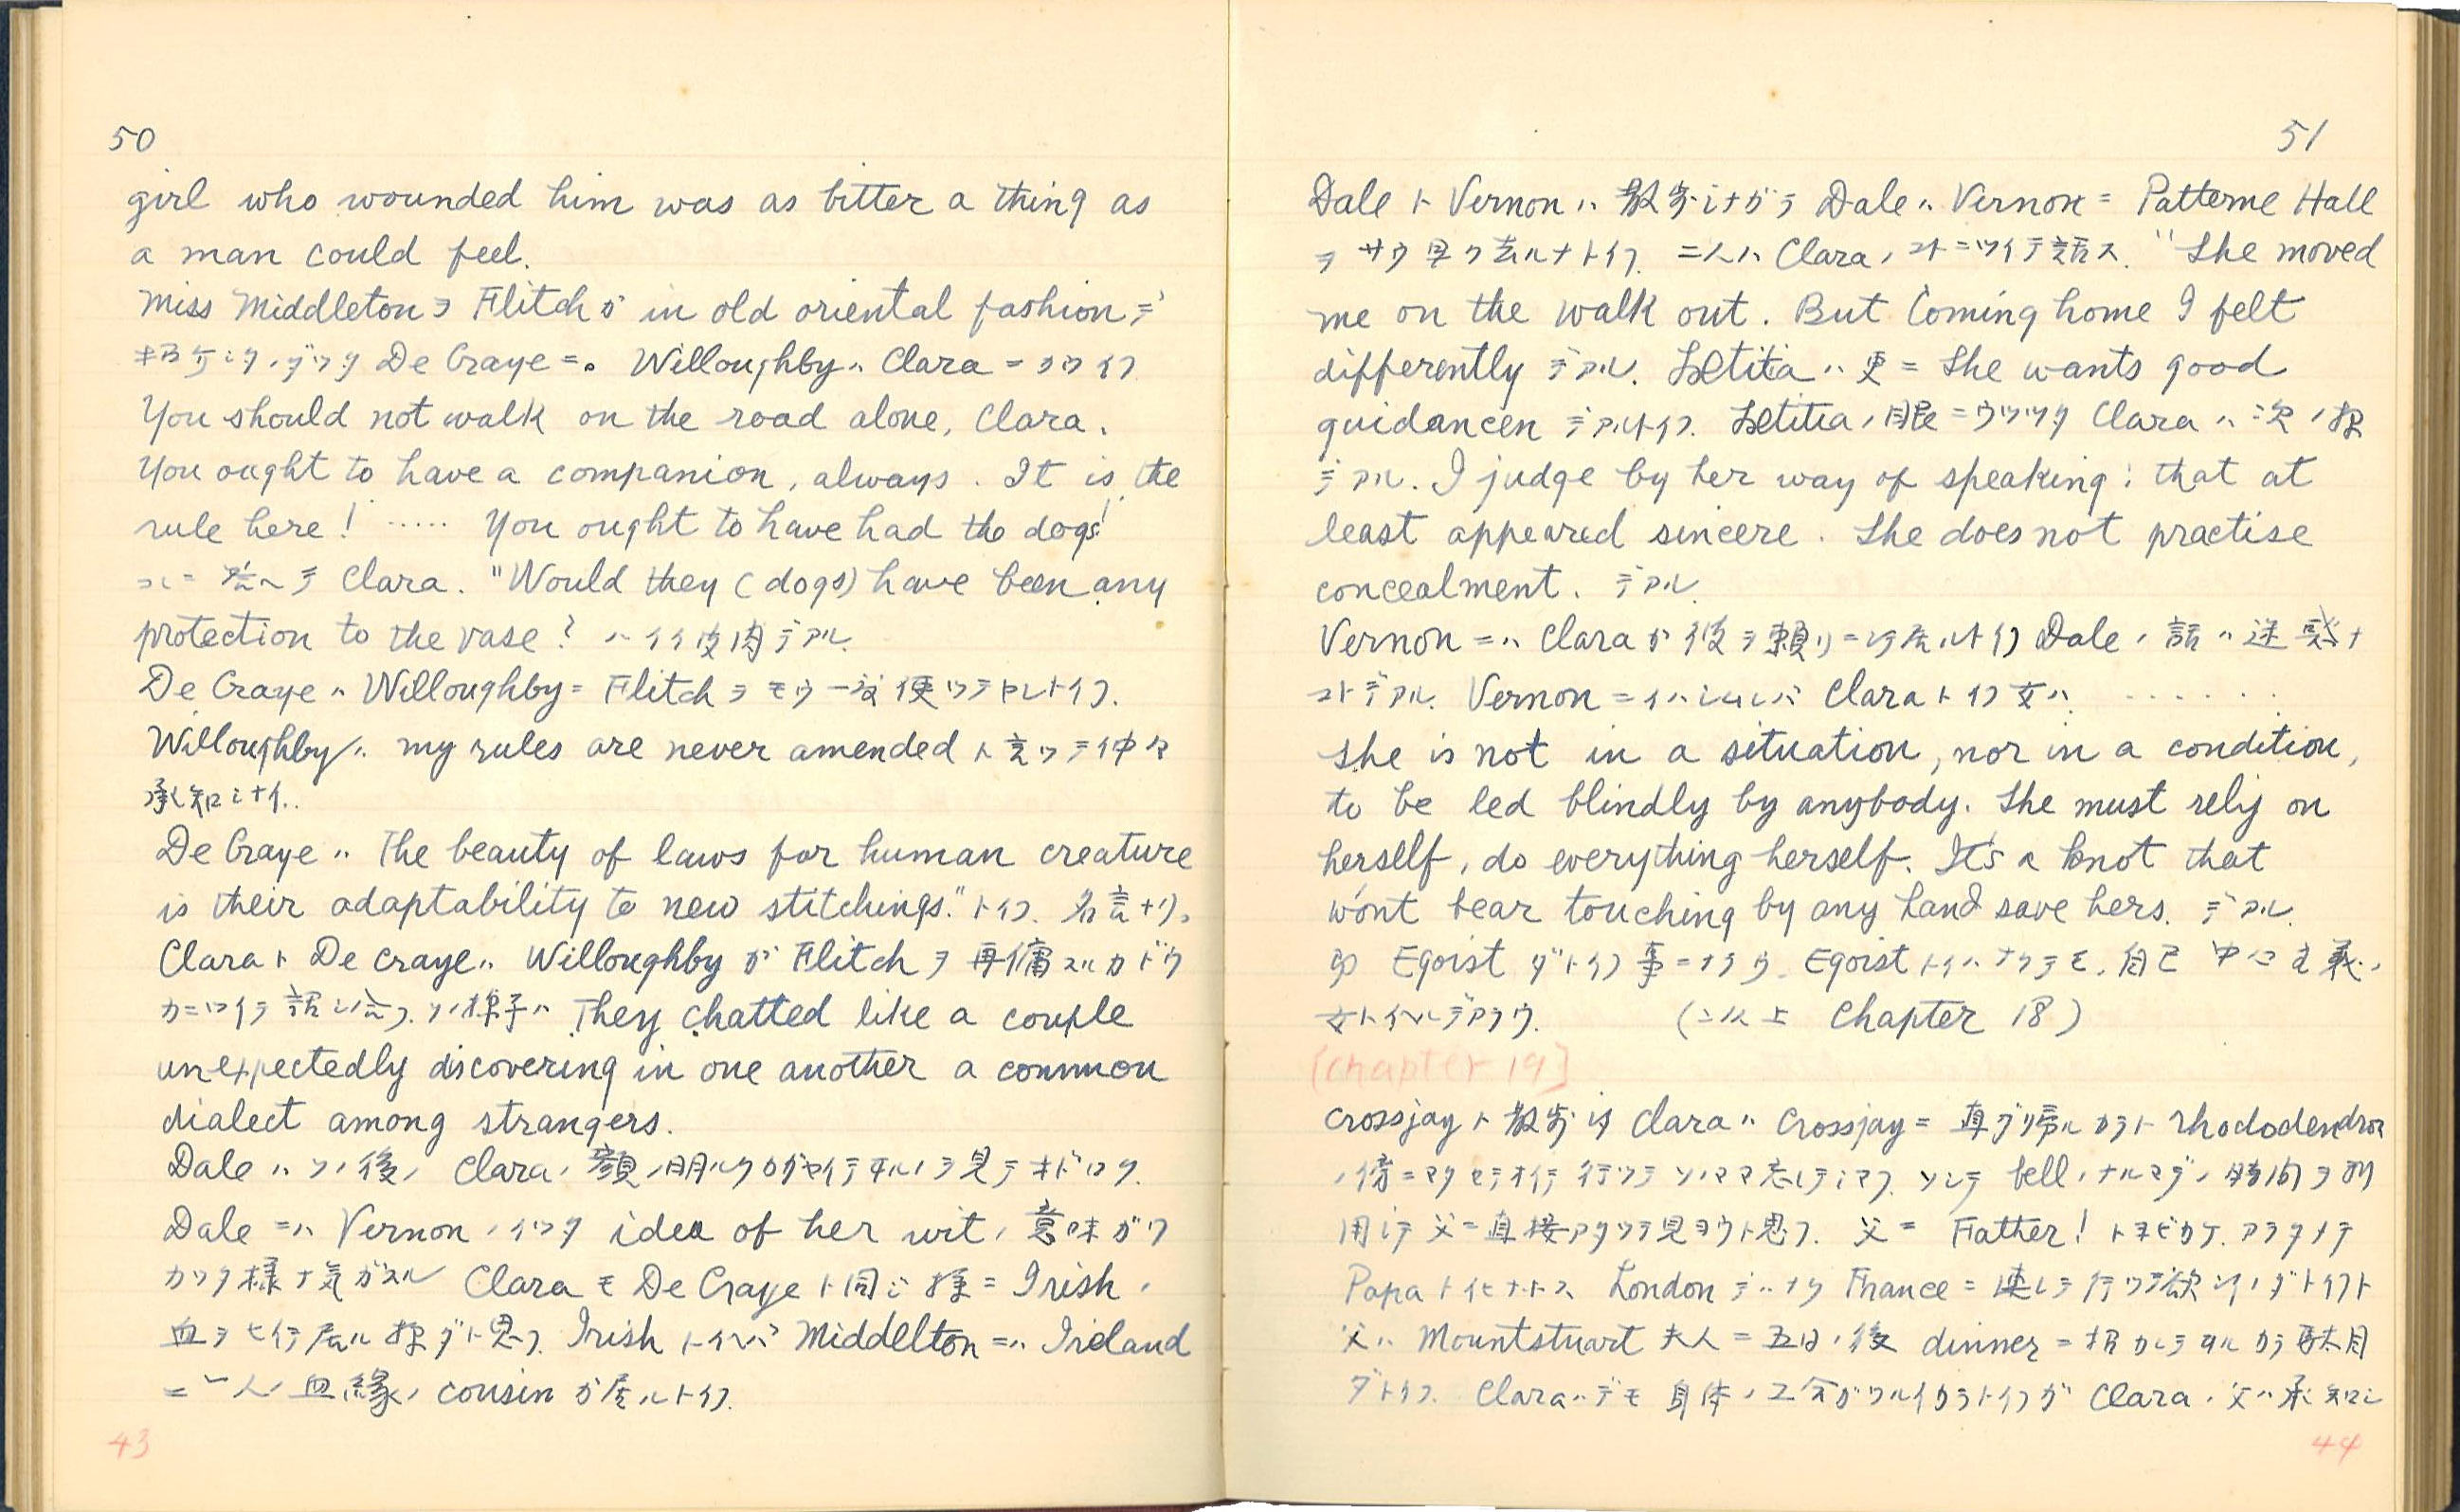 50
girl who wounded him was as bitter a thing as
a man could feel.
Miss Middleton ヲ Flitch ガ in old oriental fashion デ
タ De Craye ニ。 Willoughby ハ Clara ニ カウ イフ
You should not walk on the road alone, Clara.
You ought to have a companion, always. It is the
rule here! ..... You ought to have had the dogs!
コレニ 答ヘテ Clara. "Would they (dogs) have been any
protection to the vase? ハ イイ皮肉デアル.
De Craye ハ Willoughby ニ Flitch ヲ モウ一度使ッテヤレトイフ.
Willoughby ハ my rules are never amended ト言ッテ仲々
承知シナイ.
De Craye ハ The beauty of laws for human creature
is their adaptability to new stitchings." トイフ. 名言ナリ.
Clara ト De Craye ハ Willoughby ガ Flitch ヲ 再傭スルカドウ
カニツイテ話シ合フ. ソノ様子ハ They chatted like a couple
unexpectedly discovering in one another a common
dialect among strangers.
Dale ハ ソノ後ノ Clara ノ顔ノ明ルクカガヤイテヰルノヲ見テオドロク.
Dale ニハ Vernon ノイッタ idea of her wit ノ意味ガワ
カッタ様ナ気ガスル Clara モ De Craye ト同ジ様ニ Irish ノ
血ヲヒイテ居ル様ダト思フ. Irish トイヘバ Middelton ニハ Ireland
ニ一人ノ血縁ノ cousin ガ居ルトイフ.
43
51
Dale ト Vernon ハ 散歩シナガラ Dale ハ Vernon ニ Patterne Hall
ヲ サウ早ク去ルナトイフ. 二人ハ Clara ノコトニツイテ話ス. "She moved
me on the walk out. But Coming home I felt
differently デアル. Lætitia ハ 更ニ She wants good
guidancen デアルトイフ. Lætitia ノ眼ニウツッタ Clara ハ 次ノ様
デアル. I judge by her way of speaking: that at
least appeared sincere. She does not practise
concealment. デアル.
Vernon ニハ Clara ガ 彼ヲ頼リニシテ居ルトイフ Dale ノ話ハ迷惑ナ
コトデアル. Vernon ニイハシムレバ Clara トイフ女ハ .......
She is not in a situation, nor in a condition,
to be led blindly by anybody. She must rely on
herself, do everything herself. It's a knot that
won't bear touching by any hand save hers. デアル.
即 Egoist ダトイフ事ニナラウ. Egoist トイハナクテモ, 自己中心主義ノ
女トイヘルデアラウ. (以上 Chapter 18)
[Chapter 19]
Crossjay ト散歩シタ Clara ハ Crossjay ニ 直グ帰ルカラト rhododendron
ノ傍ニマタセテオイテ行ッテソノママ忘レテシマフ. ソシテ bell ノナルマデノ時間ヲ利
用シテ父ニ直接アタッテ見ヨウト思フ. 父ニ Father! トヨビカケ. アラタメテ
Papa ト化 London デハナク France ニ連レテ行ッテ欲シイノダトイフト
父ハ Mountstuart 夫人ニ五日ノ後 dinner ニ招カレテヰルカラ駄目
ダトイフ. Clara ハデモ身体ノ工合ガワルイカラトイフガ Clara ノ父ハ承知シ
44